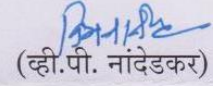 (व्ही.पी. नांदेडकर)